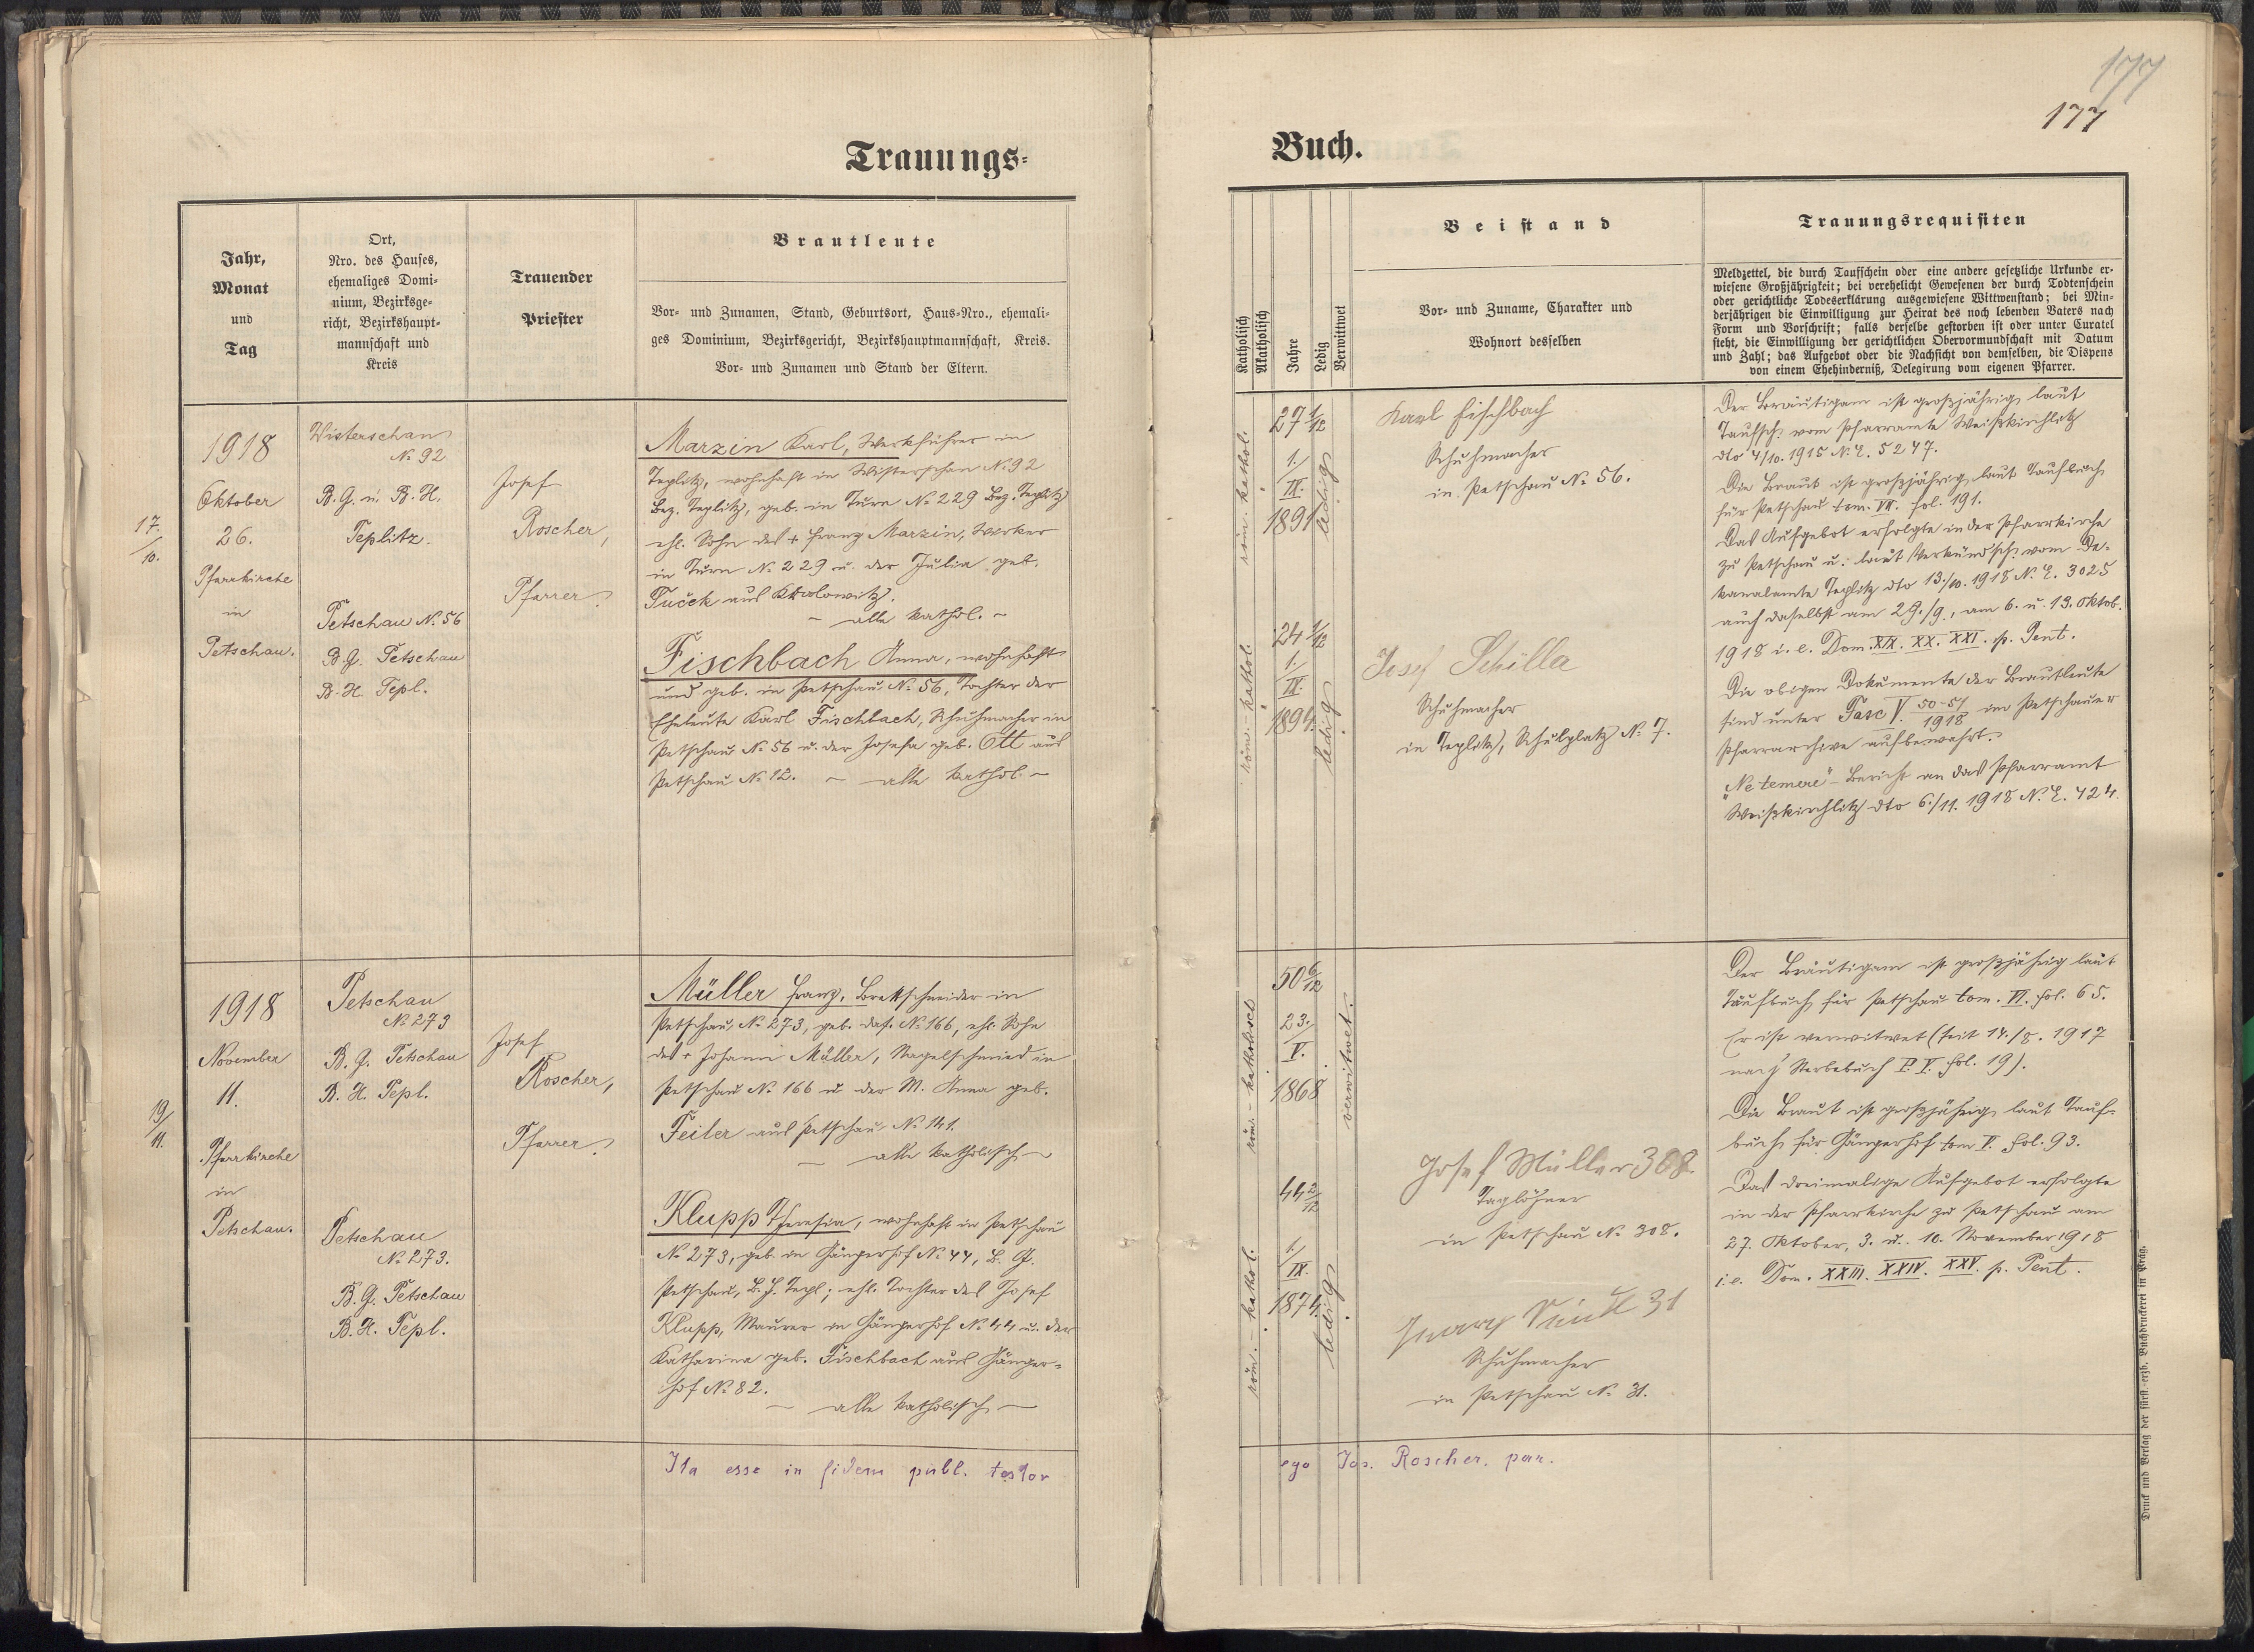 177
177
Trauungs-
Buch.
Jahr,
Monat
und
Tag
Ort,
Nro. des Hauses,
ehemaliges Domi-
nium, Bezirksge-
richt, Bezirkshaupt-
mannschaft und
Kreis
Trauender
Priester
Brautleute
Vor- und Zunamen, Stand, Geburtsort, Haus-Nro., ehemali-
ges Dominium, Bezirksgericht, Bezirkshauptmannschaft, Kreis.
Vor- und Zunamen und Stand der Eltern.
Katholisch
Akatholisch
Jahre
Ledig
Verwittwet
Beistand
Vor- und Zuname, Charakter und
Wohnort desselben
Trauungsrequisiten
Meldzettel, die durch Taufschein oder eine andere gesetzliche Urkunde er-
wiesene Großjährigkeit; bei verehelicht Gewesenen der durch Todtenschein
oder gerichtliche Todeserklärung ausgewiesene Wittwenstand; bei Min-
derjährigen die Einwilligung zur Heirat des noch lebenden Vaters nach
Form und Vorschrift; falls derselbe gestorben ist oder unter Curatel
steht, die Einwilligung der gerichtlichen Obervormundschaft mit Datum
und Zahl; das Aufgebot oder die Nachsicht von demselben, die Dispens
von einem Ehehinderniß, Delegirung vom eigenen Pfarrer.
17./10.
1918
Oktober
26.
Pfarrkirche
in
Petschau.
Wisterschan
No 92
B. G. u. B. H.
Teplitz.
Petschau No. 56
B. G. Petschau
B. H. Tepl.
Josef
Roscher,
Pfarrer.
Marzin Karl, Werkführer in
Teplitz, wohnhaft in Wisterschan No 92
Bez. Teplitz, geb. in Turn No 229 Bez. Teplitz
ehl. Sohn des + Franz Marzin,
in Turn No 229 u. der Julia geb.
Tuček aus
~ alle kathol. ~
Fischbach Anna, wohnhaft
und geb. in Petschau No 56, Tochter der
Eheleute Karl Fischbach, Schuhmacher in
Petschau No 56 u. der Josefa geb. Ott aus
Petschau No 12. ~ alle kathol. ~
röm. kathol.
27 1/12
1./IX.
1891
ledig
röm.-kathol.
24 1/12
1./IX.
1894.
ledig
Karl Fischbach
Schuhmacher
in Petschau No 56.
Josef Schilla
Schuhmacher
in Teplitz, Schulplatz No 7.
Der Bräutigam ist großjährig laut
Taufsch. vom Pfarramte Weißkirchlitz
dto 4/10. 1915 N. E. 5247.
Die Braut ist großjährig laut Taufbuch
für Petschau tom. VII. fol. 191.
Das Aufgebot erfolgte in der Pfarrkirche
zu Petschau u. laut Verkündsch. vom De-
kanalamte Teplitz dto 13./10. 1918 N. E. 3025
auch daselbst am 29./9., am 6. u. 13. Oktob.
1918 i. e. Dom. XIX. XX. XXI. p. Pent.
Die obigen Dokumente der Brautleute
sind unter Fasc V. 50-51/1918 im Petschauer
Pfarrarchive aufbewahrt.
"Ne temere"-Bericht an das Pfarramt
Weißkirchlitz dto 6./11. 1918 N. E. 424.
19/11.
1918
November
11.
Pfarrkirche
in
Petschau.
Petschau
No 273
B. G. Petschau
B. H. Tepl.
Petschau
No 273.
B. G. Petschau
B. H. Tepl.
Josef
Roscher,
Pfarrer.
Müller Franz, Brettschneider in
Petschau No 273, geb. das. No 166, ehl. Sohn
des + Johann Müller, Nagelschmied in
Petschau No 166 u. der M. Anna geb.
Feiler aus Petschau No 141.
~ alle katholisch ~
Klupp Theresia, wohnhaft in Petschau
No 273, geb. in Gängerhof No 44, B. G.
Petschau, B. H. Tepl; ehl. Tochter des Josef
Klupp, Maurer in Gängerhof No 44 u. der
Katharina geb. Fischbach aus Gänger-
hof No 82.
~ alle katholisch ~
röm.-katholisch
50 6/12
23./V.
1868
verwitwet.
röm.-kathol.
44 2/12
1./IX.
1874.
ledig
Josef Müller 308.
Taglöhner
in Petschau No 308.
31
Schuhmacher
in Petschau No 31.
Der Bräutigam ist großjährig laut
Taufbuch für Petschau tom. VI. fol. 65.
Er ist verwitwet (seit 14./8. 1917
nach Sterbebuch P. V. fol. 19).
Die Braut ist großjährig laut Tauf-
buch für Gängerhof tom V. fol. 93.
Das dreimalige Aufgebot erfolgte
in der Pfarrkirche zu Petschau am
27. Oktober, 3. u. 10. November 1918
i. e. Dom. XXIII. XXIV. XXV. p. Pent.
Ita esse in fidem publ. testor
ego Jos. Roscher, par.
Druck und Verlag der fürst.-erzb. Buchdruckerei in Prag.